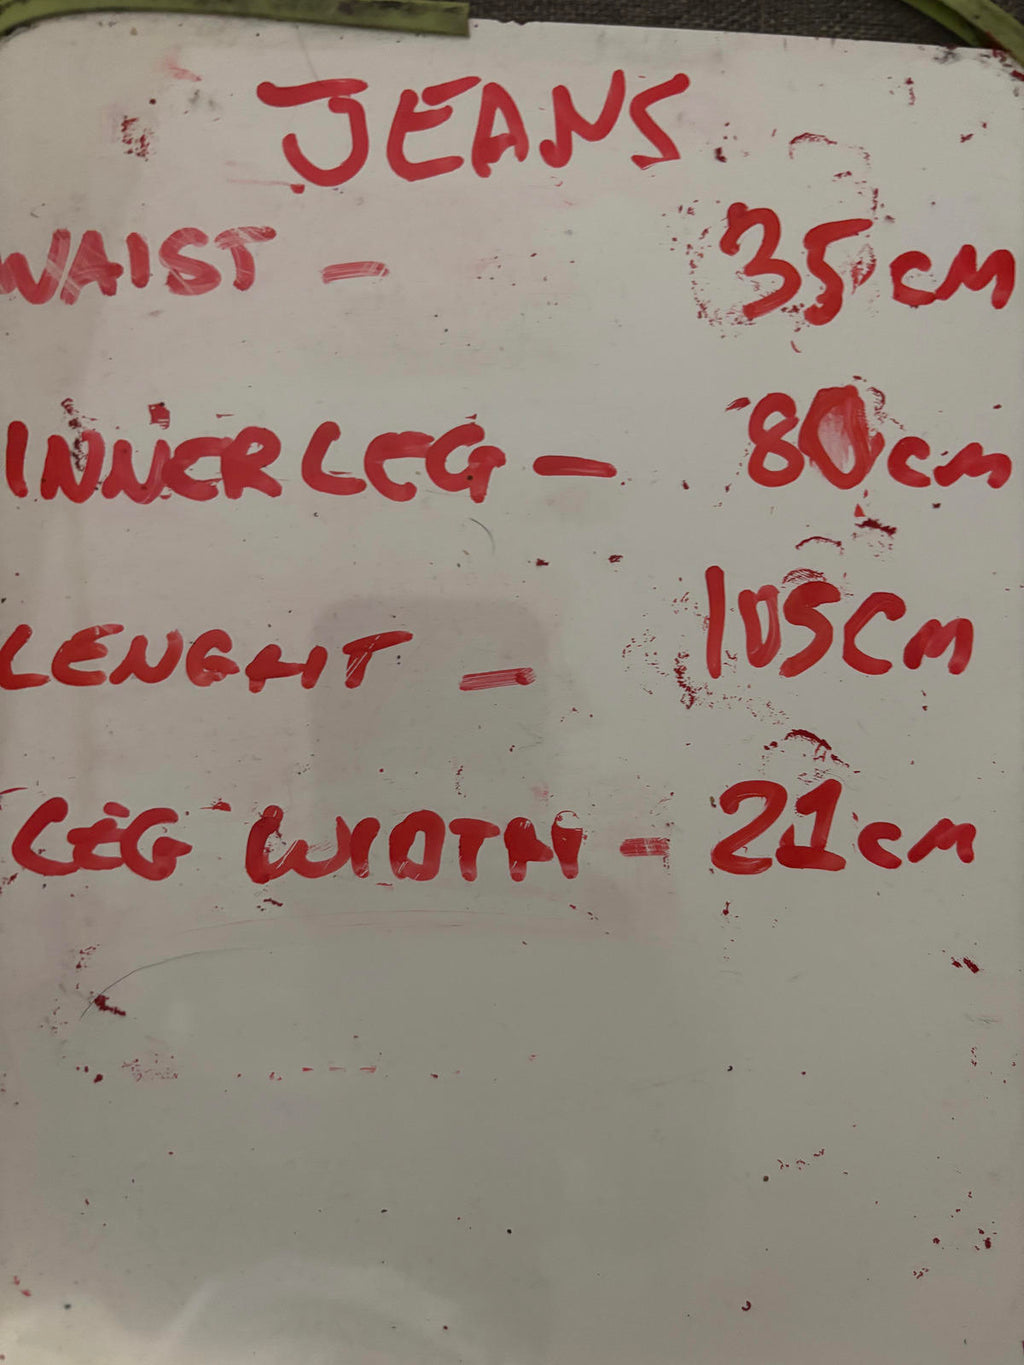 JEANS
WAIST - 35cm
INNER LEG - 80cm
LENGHT - 105cm
LEG WIDTH - 21cm